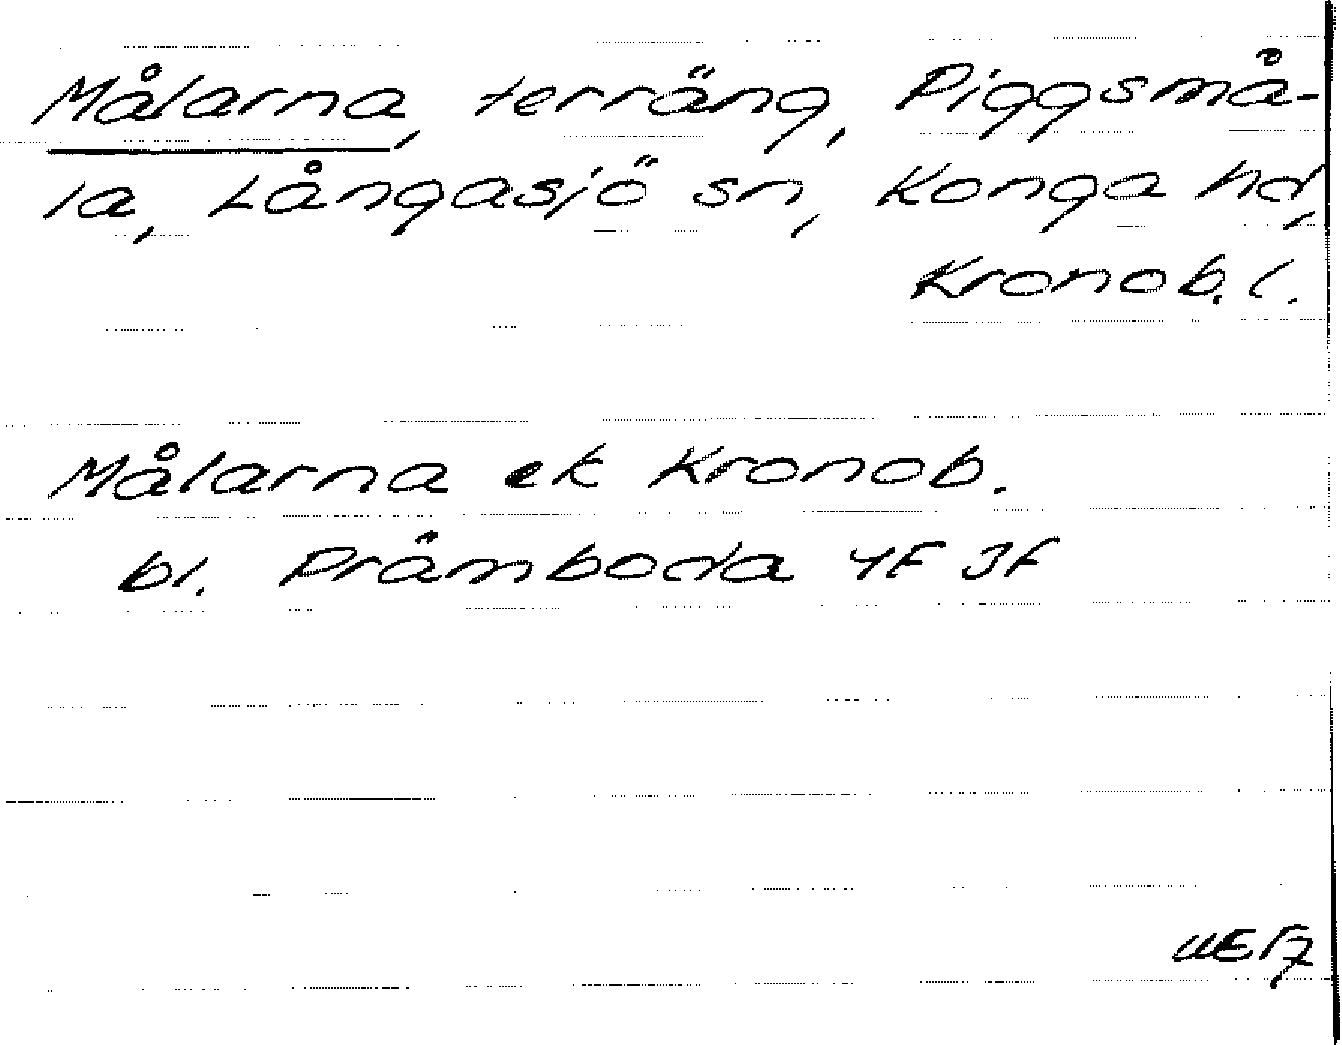 Målarna, terräng, Piggsmå-
la, Långasjö sn, Konga hd,
Kronob. l.
Målarna ek Kronob.
bl. Pråmboda 4F 3f